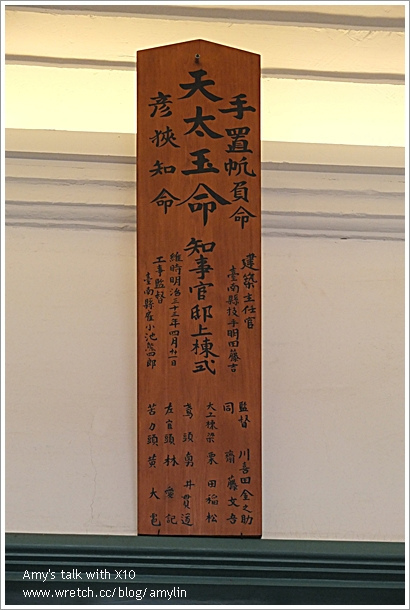 手置帆負命
天太玉命
彥狹知命
建築主任官
臺南縣技手明田藤吉
知事官邸上棟式
維時明治三十三年四月廿一日
工事監督
臺南縣雇小池四郎
監督 川喜田金之助
同 齋藤文吾
大工棟梁 栗田福松
鳶頭 勇井貫道
左官頭 林愛記
苦力頭 黃大
Amy's talk with X10
www.wretch.cc/blog/amylin